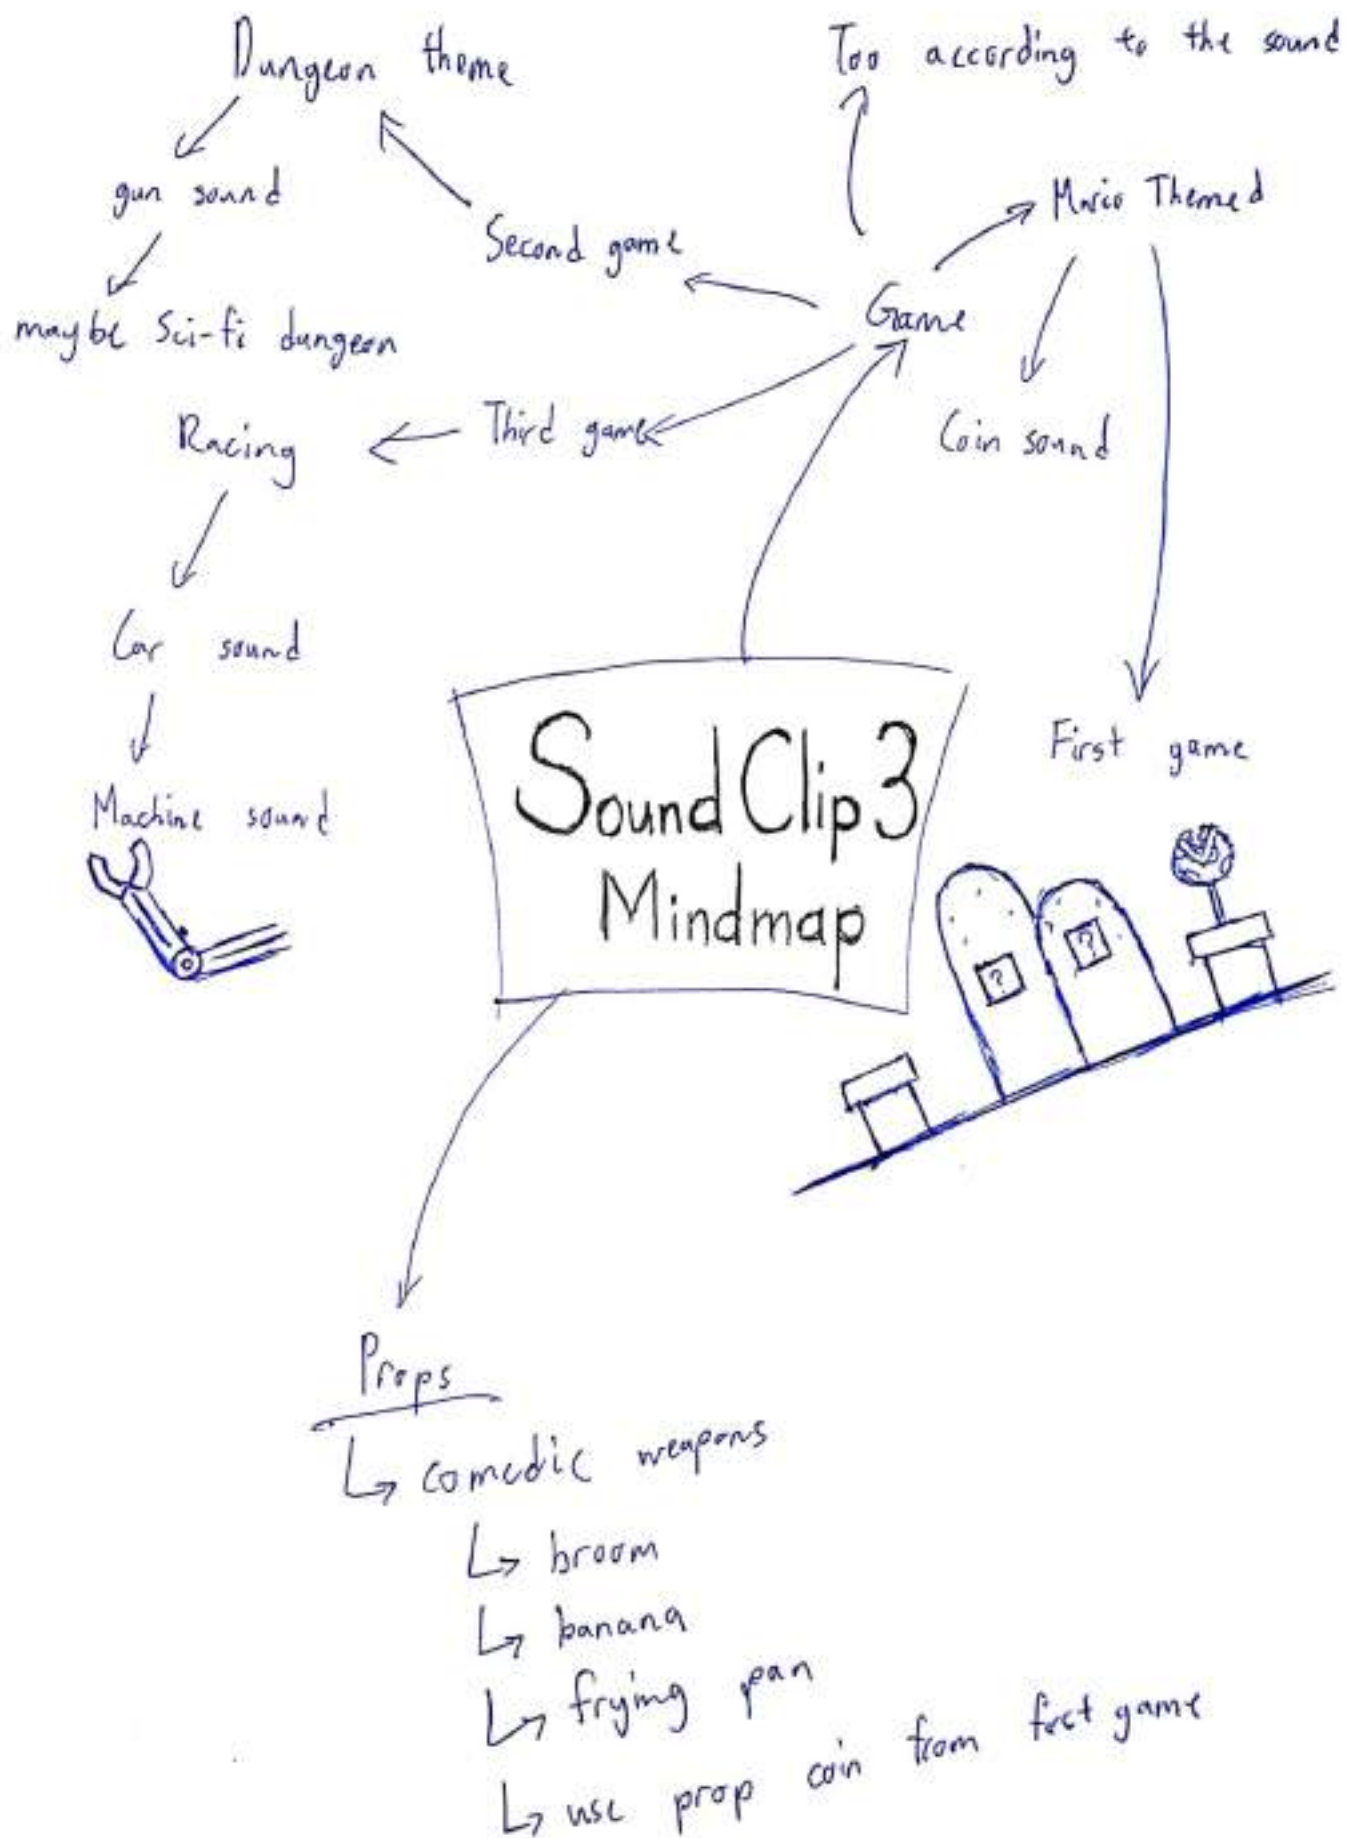 Dungeon theme
Too according to the sound
gun sound
Mario Themed
Second game
maybe Sci-fi dungeon
Game
Racing
Third game
Coin sound
Car sound
First game
Machine sound
Sound Clip 3
Mindmap
?
?
Props
comedic weapons
broom
banana
frying pan
use prop coin from first game